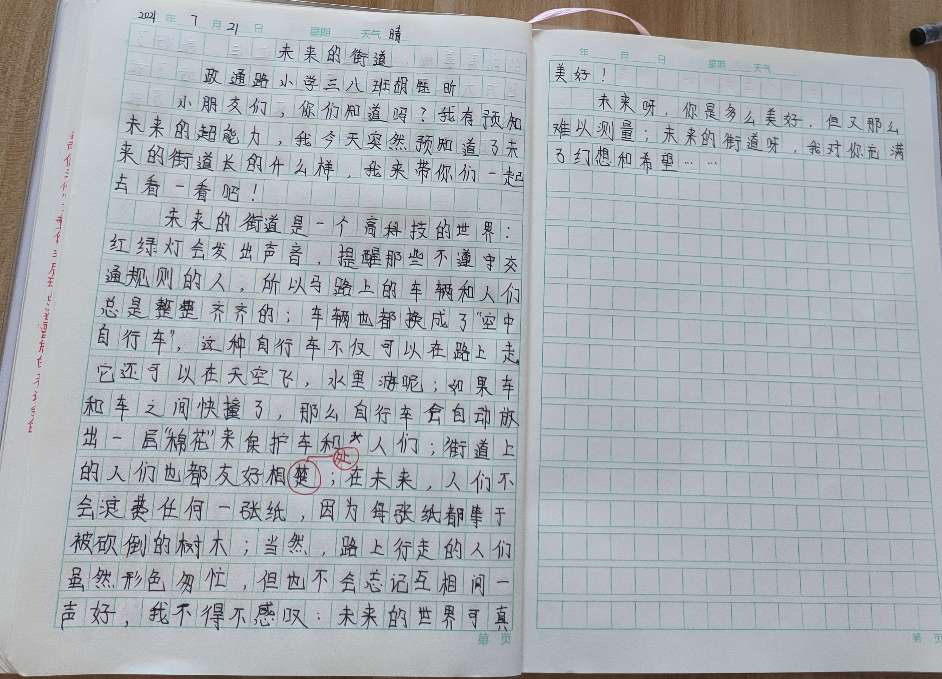 2021 年 7 月 21 日 星期 天气 晴
未来的街道
政通路小学三八班胡 昕
小朋友们，你们知道吗？我有预知
未来的超能力，我今天突然预知道了未
来的街道长的什么样，我来带你们一起
去看一看吧！
未来的街道是一个高科技的世界：
红绿灯会发出声音，提醒那些不遵守交
通规则的人，所以马路上的车辆和人们
总是整整齐齐的；车辆也都换成了“空中
自行车”，这种自行车不仅可以在路上走，
它还可以在天空飞，水里游呢；如果车
和车之间快撞了，那么自行车会自动放
出一层“棉花”来保护车和人们；街道上
处
的人们也都友好相楚；在未来，人们不
会浪费任何一张纸，因为每张纸都来于
被砍倒的树木；当然，路上行走的人们
虽然形色匆忙，但也不会忘记互相问一
声好，我不得不感叹：未来的世界可真
第 页
年 月 日 星期 天气
美好！
未来呀，你是多么美好，但又那么
难以测量；未来的街道呀，我对你充满
了幻想和希望……
第 页